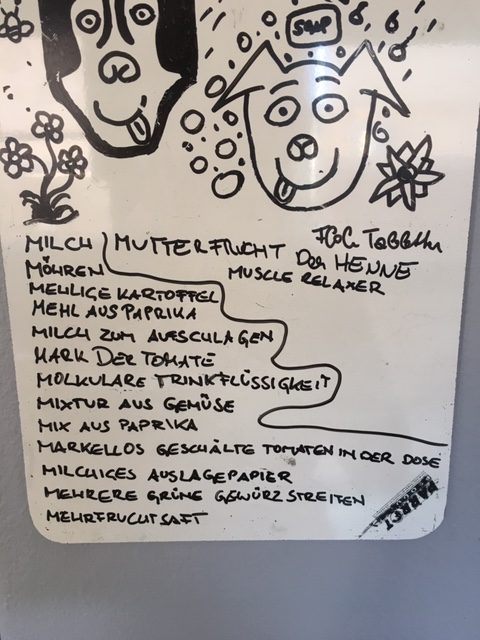 MILCH
MÖHREN
MEHLIGE KARTOFFEL
MEHL AUS PAPRIKA
MILCH ZUM AUFSCHLAGEN
MARK DER TOMATE
MOLKULARE TRINKFLÜSSIGKEIT
MIXTUR AUS GEMÜSE
MIX AUS PAPRIKA
MARKELLOS GESCHÄLTE TOMATEN IN DER DOSE
MILCHIGES AUSLAGEPAPIER
MEHRERE GRÜNE GEWÜRZSTREIFEN
MEHRFRUCHTSAFT
MUTTERFRUCHT
DER HENNE
MUSCLE RELAXER